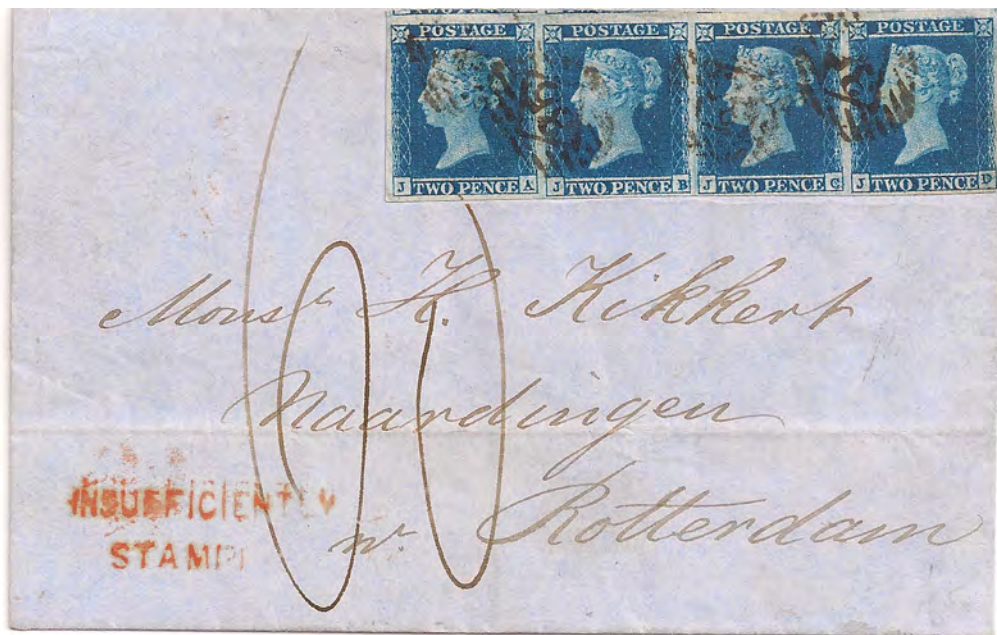 POSTAGE POSTAGE POSTAGE POSTAGE
J TWO PENCE A J TWO PENCE B J TWO PENCE C J TWO PENCE D
Monsr H. Kikkert
Naardingen
nr. Rotterdam
INSUFFICIENTLY
STAMP